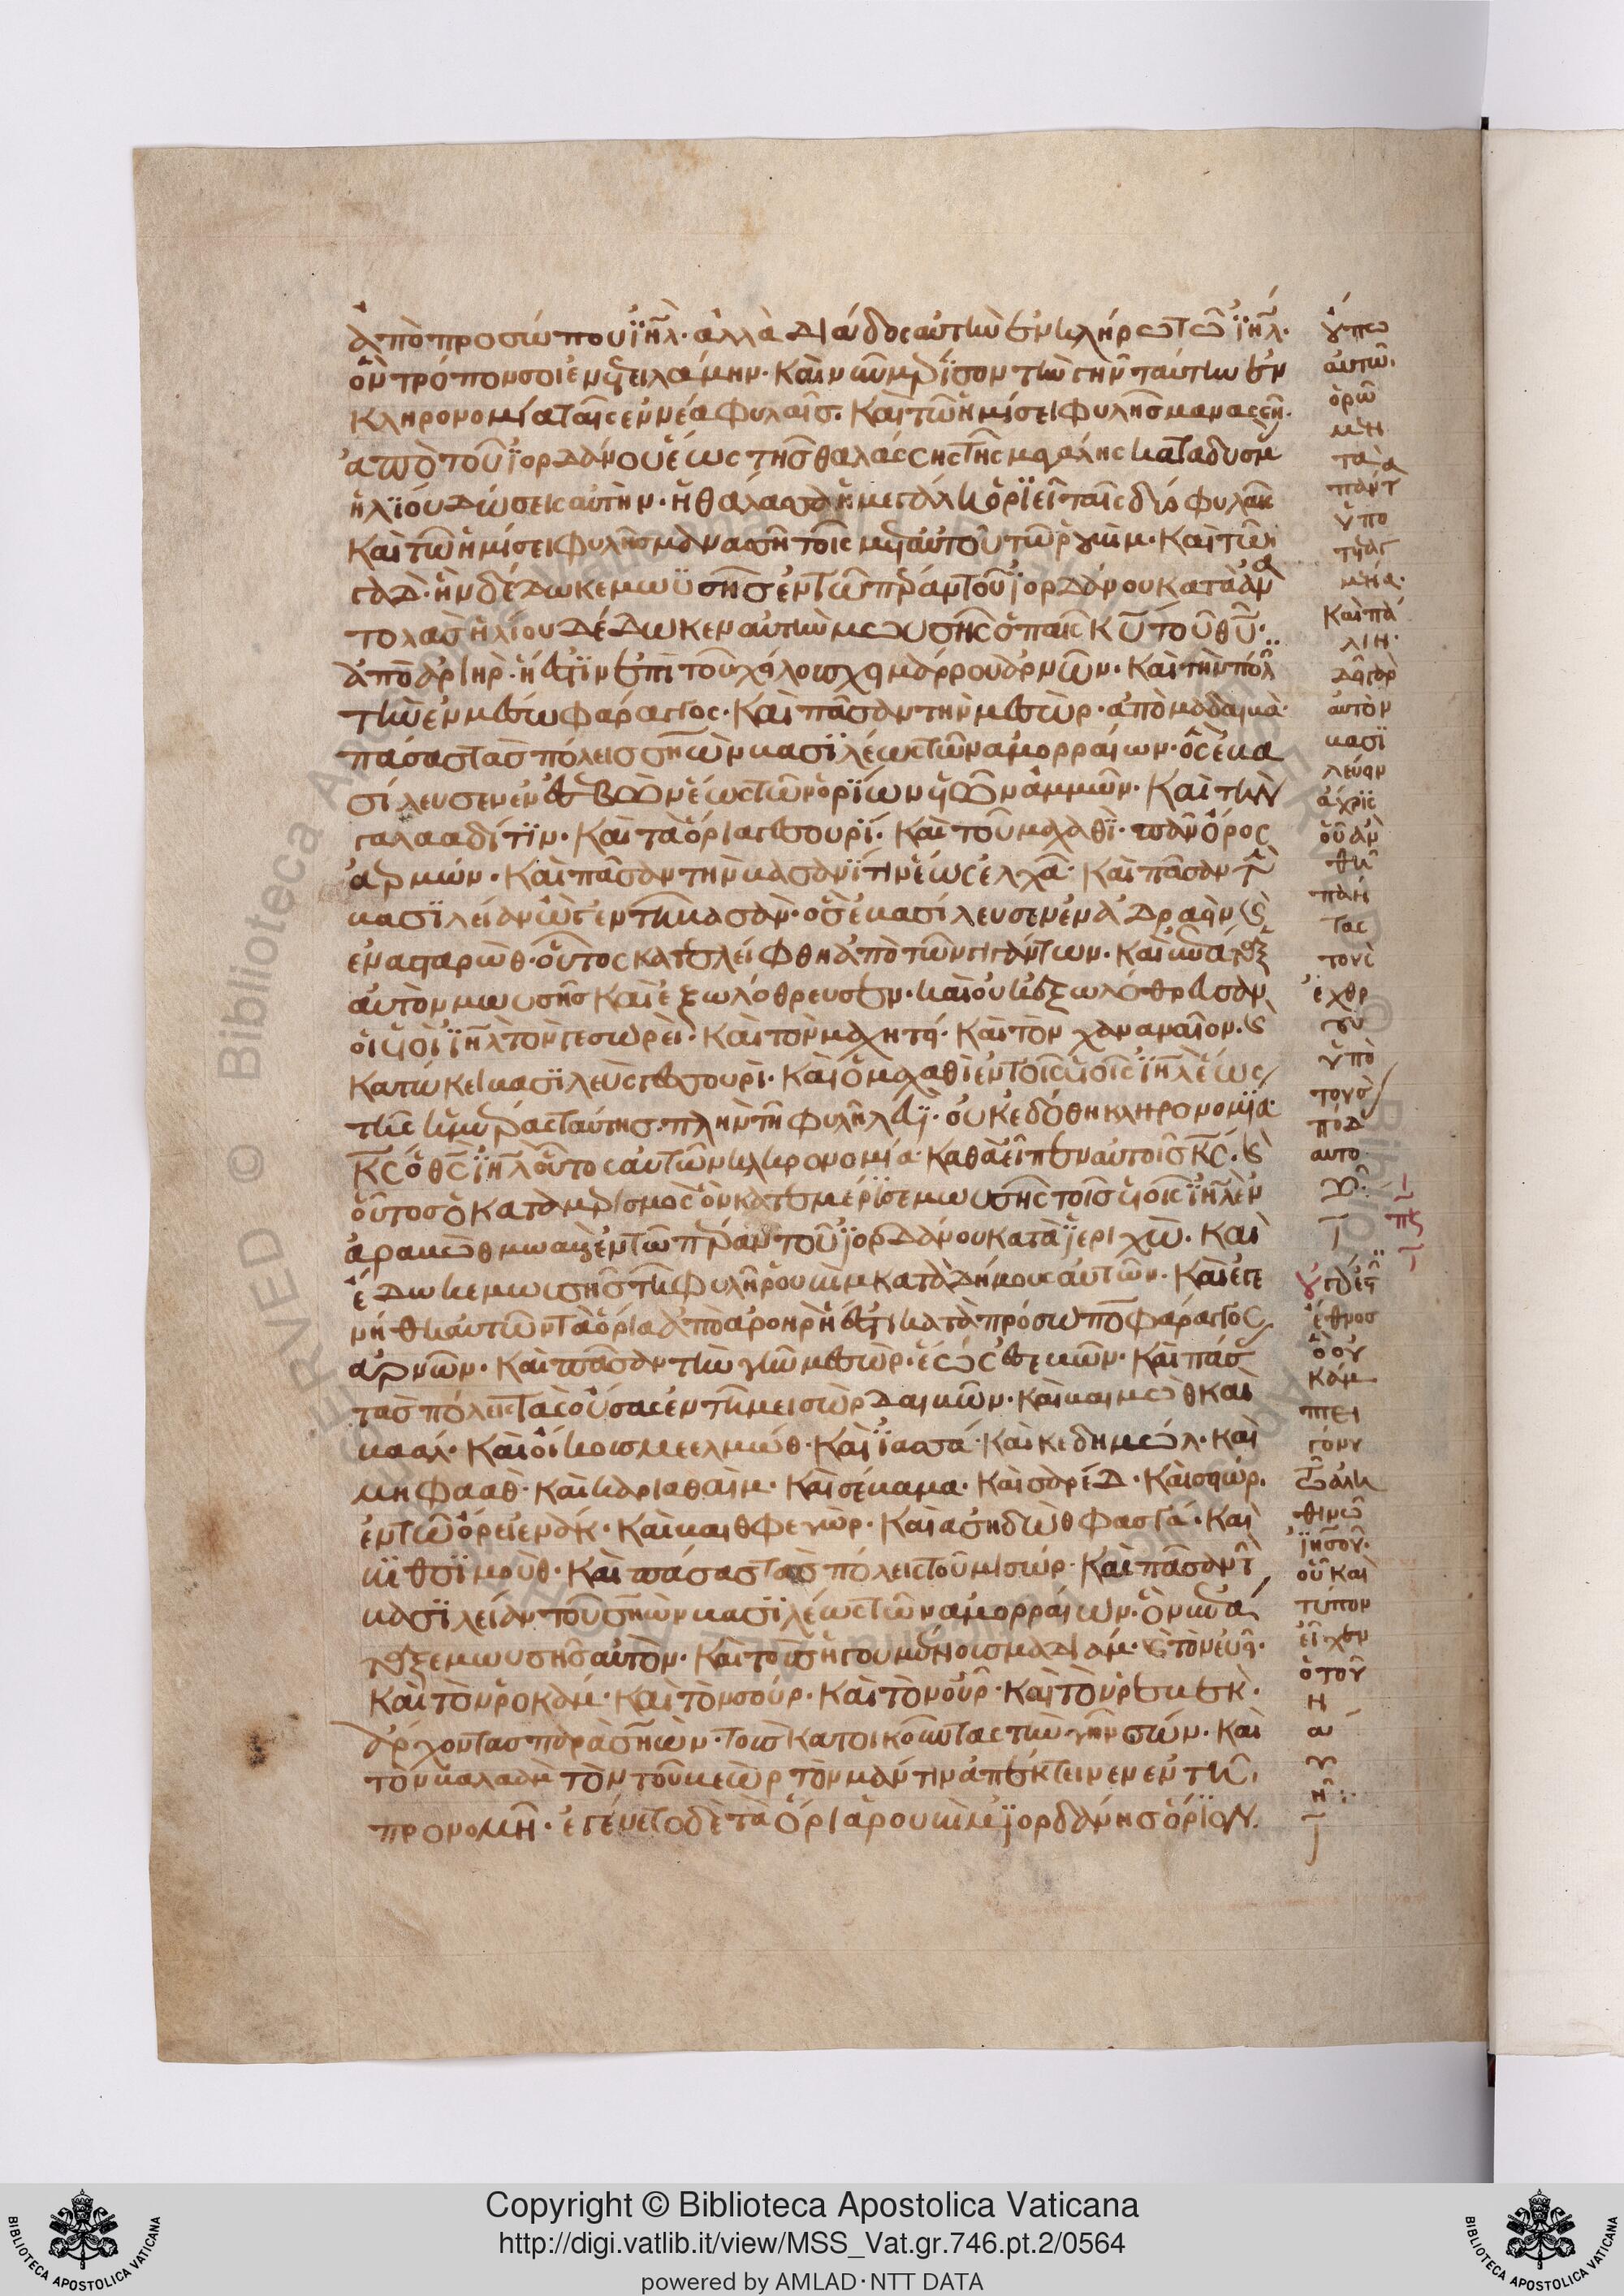 ἀπὸ προσώπου ἰη̅λ· ἀλλὰ διάδος αὐτὴν ἐν κλήρω τῶ ἰη̅λ·
ὃν τρόπον σοι ἐνετειλάμην· καὶ νῦν μέρισον τὴν γῆν ταύτην ἐν
κληρονομία ταῖς ἐννέα φυλαῖς· καὶ τῶ ἡμίσει φυλῆς μανασσῆ·
ἀπὸ τοῦ ἰορδάνου ἕως τῆς θαλάσσης τῆς μεγάλης κατα δυσμ
ἡλίου δώσεις αὐτὴν· ἡ θάλασσα ἡ μεγάλη ὁριεῖ ταῖς δύο φυλαῖς
καὶ τῶ ἡμίσει φυλῆς μανασσῆ τοῖς μετ αὐτοῦ τῶ ρουβὶμ· καὶ τῶ
γὰδ· ἣν δέδωκε μωϋσῆς ἐν τῶ πέραν τοῦ ἰορδάνου κατὰ ἀνα
τολὰς ἡλίου δέδωκεν αὐτὴν μωυσῆς ὁ παῖς κ̅υ̅ τοῦ θ̅υ̅·
ἀπὸ ἀροὴρ· ἥ ἐστιν ἐπὶ τοῦ χείλους χειμάρρου ἀρνῶν· καὶ τὴν πόλ
τὴν ἐν μέσω φάραγγος· καὶ πᾶσαν τὴν μεισὼρ· ἀπὸ μαδαβὰ·
πάσας τὰς πόλεις σηὼν βασιλέως τῶν ἀμορραίων· ὃς ἐβα
σίλευσεν ἐν ἐσεβὼν ἕως τῶν ὁρίων υἱῶν ἀμμῶν· καὶ τὴν
γαλααδίτιν· καὶ τὰ ὅρια γεσουρί· καὶ τοῦ μαχαθὶ· πᾶν ὄρος
ἀερμών· καὶ πᾶσαν τὴν βασανίτιν ἕως ἐλχᾶ· καὶ πᾶσαν τὴν
βασιλείαν ὢγ ἐν τῆ βασὰν· ὃς ἐβασίλευσεν ἐν ἀδραεὶν καὶ
ἐν ἀσταρὼθ· οὗτος κατελείφθη ἀπὸ τῶν γιγάντων· καὶ ἐπάταξ
αὐτὸν μωυσῆς καὶ ἐξωλόθρευσεν· καὶ οὐκ ἐξωλόθρευσαν
οἱ υἱοὶ ἰη̅λ τὸν γεσωρεὶ· καὶ τὸν μαχητεί· καὶ τὸν χαναναῖον· καὶ
κατώκει βασιλεὺς γεσουρὶ· καὶ ὁ μαχαθὶ ἐν τοῖς υἱοῖς ἰη̅λ ἕως
τῆς ἡμέρας ταύτης· πλὴν τῆ φυλῆ λευὶ· οὐκ ἐδόθη κληρονομία
κ̅ς̅ ὁ θ̅ς̅ ἰη̅λ οὗτος αὐτῶν κληρονομία· καθὰ εἶπεν αὐτοῖς κ̅ς̅· καὶ
οὗτος ὁ καταμερισμὸς ὃν κατεμέρισε μωυσῆς τοῖς υἱοῖς ἰη̅λ ἐν
ἀραβὼθ μωαβ ἐν τῶ πέραν τοῦ ἰορδάνου κατὰ ἰεριχὼ· καὶ
ἔδωκε μωυσῆς τῆ φυλῆ ρουβὶμ κατὰ δήμους αὐτῶν· καὶ ἐγε
νήθη αὐτῶν τὰ ὅρια ἀπὸ ἀροὴρ ἥ ἐστι κατὰ πρόσωπον φάραγγος
ἀρνῶν· καὶ πᾶσαν τὴν γῆν μεισὼρ· ἕως ἐσεβῶν· καὶ πάσ
τὰς πόλεις τὰς οὔσας ἐν τῆ μεισὼρ δαιβῶν· καὶ βαιμὼθ καὶ
βααλ· καὶ οἴκοις μεελμώθ· καὶ ἰασσά· καὶ κεδημὼλ· καὶ
μηφααθ· καὶ καριαθαὶμ· καὶ σέβαμα· καὶ σαρέδ· καὶ σιὼρ·
ἐν τῶ ὄρει ἐνακ· καὶ βαιθφεγὼρ· καὶ ἀσηδὼθ φασγά· καὶ
βιθσιμοὺθ· καὶ πάσας τὰς πόλεις τοῦ μισώρ· καὶ πᾶσαν τὴν
βασιλείαν τοῦ σηὼν βασιλέως τῶν ἀμορραίων· ὃν ἐπά
ταξε μωυσῆς αὐτὸν· καὶ τοὺς ἡγουμένους μαδιάμ· καὶ τὸν εὐὶ·
καὶ τὸν ῥοκὸμ· καὶ τὸν σούρ· καὶ τὸν οὔρ· καὶ τὸν ῥεβεκ·
ἄρχοντας παρὰ σηὼν· τοὺς κατοικοῦντας τὴν γῆν σιών· καὶ
τὸν βαλαὰμ τὸν τοῦ βεὼρ τὸν μάντιν ἀπέκτεινεν ἐν τῆ
προνομῆ· ἐγένετο δὲ τὰ ὅρια ρουβὶμ ἰορδάνης ὅριον·
αὐτῶ·
ὁρῶ
μὲν
τὰ
ὑπο
καὶ πά
λιν·
αὐτὸν
βασι
λεύειν
ἄχρις
οὗ ἂν
θῆ
πάν
τας
τοὺς
ἐχθρ
ὑπὸ
τοὺς
πόδ
αὐτο
πζ
ἔθνος
ὃ οὐ
κάμ
πτει
γόνυ
τῶ ἀλη
θινῶ
ἰησοῦ·
οὗ καὶ
τύπον
εἶχεν
ὁ τοῦ